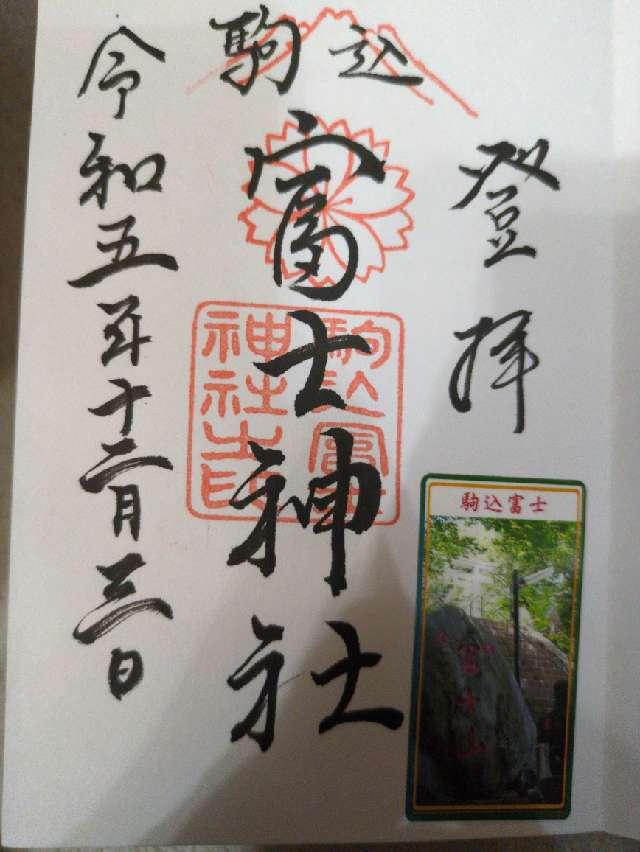 登拝
駒込
富士神社
令和五年十二月三日
駒込富士
神社
駒込富士
富士山